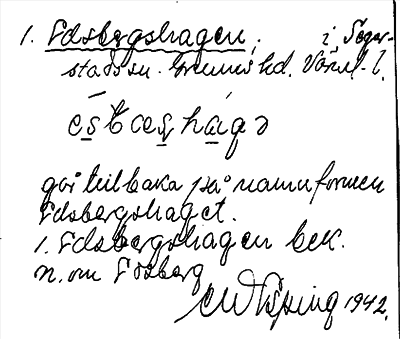 1. Edsbergshagen, i Seger-
stads sn. Grums hd. Värml. l.
går tillbaka på namnformen
Edsbergshaget.
1. Edsbergshagen bek.
n. om Edsberg
1942.